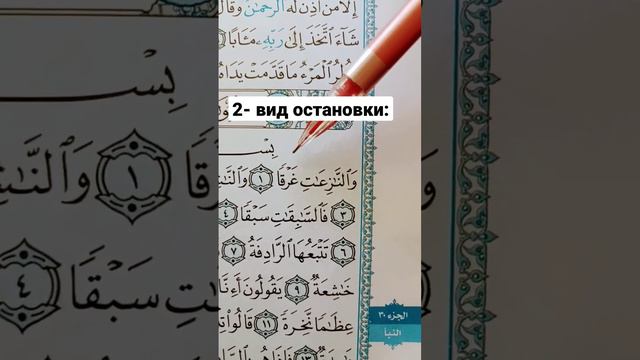 إِلَّا مَنْ أَذِنَ لَهُ ٱلرَّحْمَٰنُ وَقَالَ
شَآءَ ٱتَّخَذَ إِلَىٰ رَبِّهِۦ مَـَٔابًا
ٱلْمَرْءُ مَا قَدَّمَتْ يَدَاهُ
2- вид остановки:
بِسْ
وَٱلنَّٰزِعَٰتِ غَرْقًا ١
٣ فَٱلسَّٰبِقَٰتِ سَبْقًا ٤
٦ تَتْبَعُهَا ٱلرَّادِفَةُ ٧
خَٰشِعَةٌ ٩ يَقُولُونَ أَءِنَّا
عِظَٰمًا نَّخِرَةً ١١ قَالُوا۟
الجزء ٣٠
النبأ